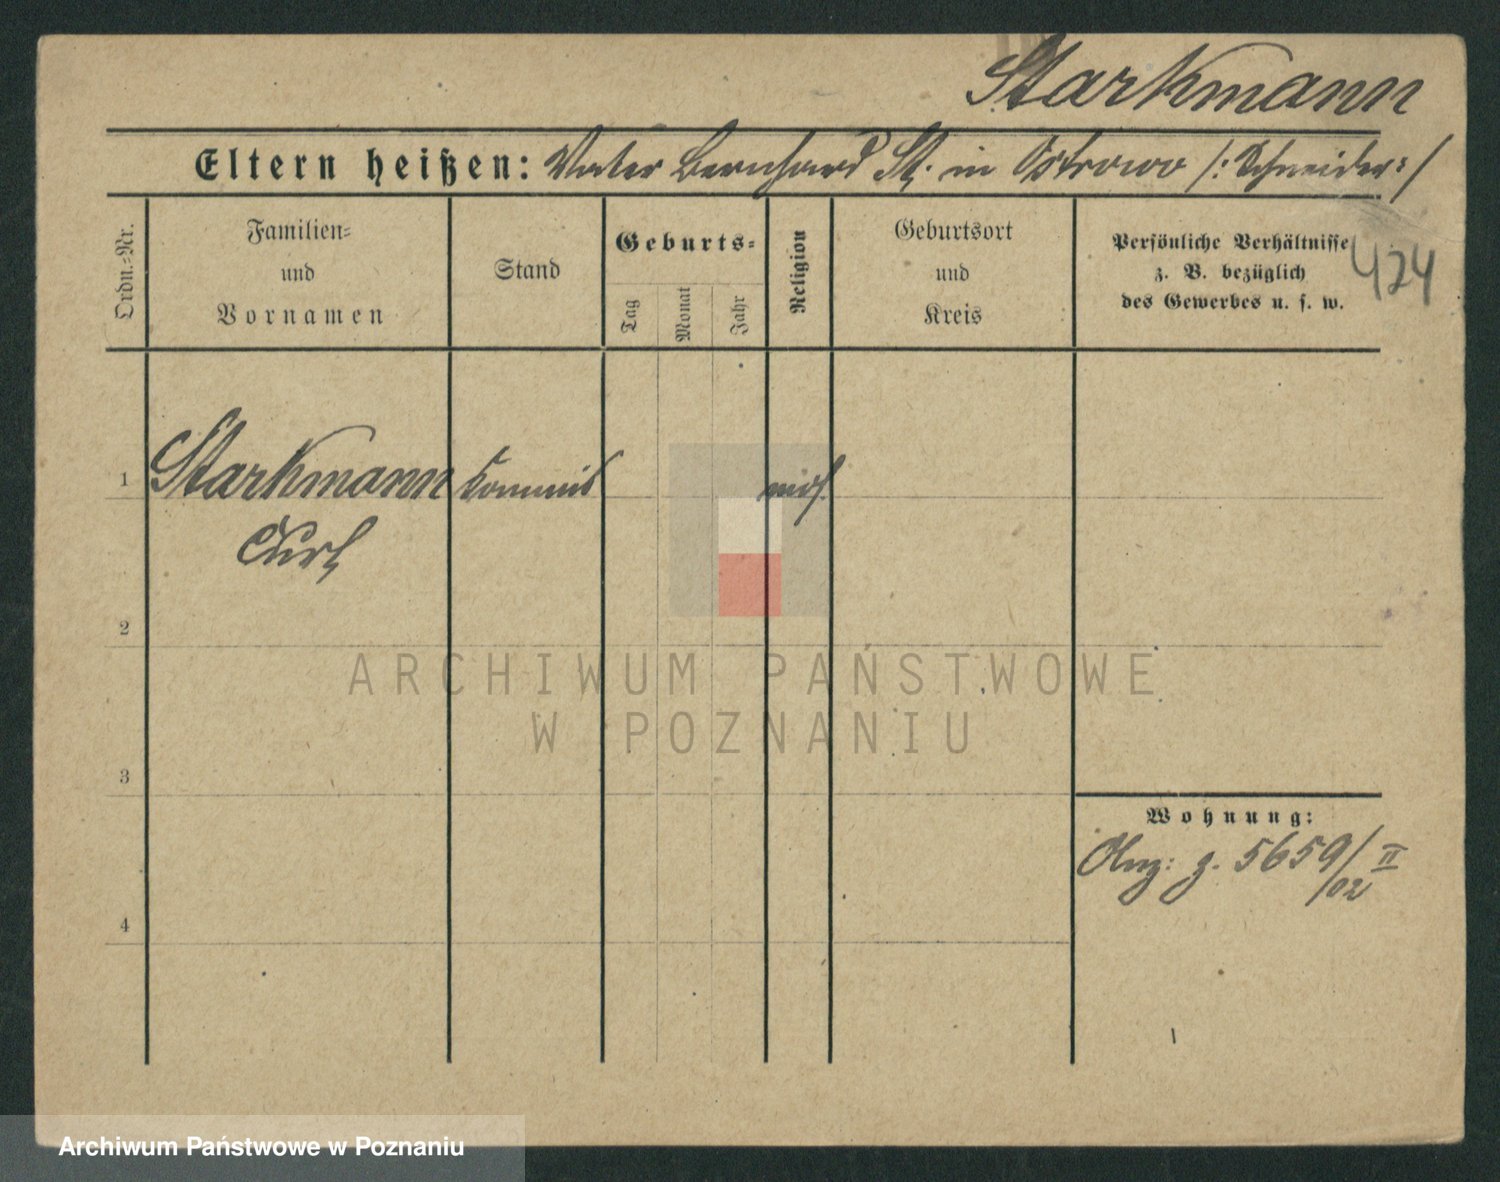 Starkmann
Eltern heißen: Vater Bernhard St. in Ostrowo /: Schneider :/
Ordn.-Nr.
Familien-
und
Vornamen
Stand
Geburts-
Tag
Monat
Jahr
Religion
Geburtsort
und
Kreis
Persönliche Verhältnisse
z. B. bezüglich
des Gewerbes u. s. w.
424
1
Starkmann
Curt
Commis
mos.
2
3
4
Wohnung:
Anz: z. 5659/02 II
ARCHIWUM PAŃSTWOWE
W POZNANIU
Archiwum Państwowe w Poznaniu